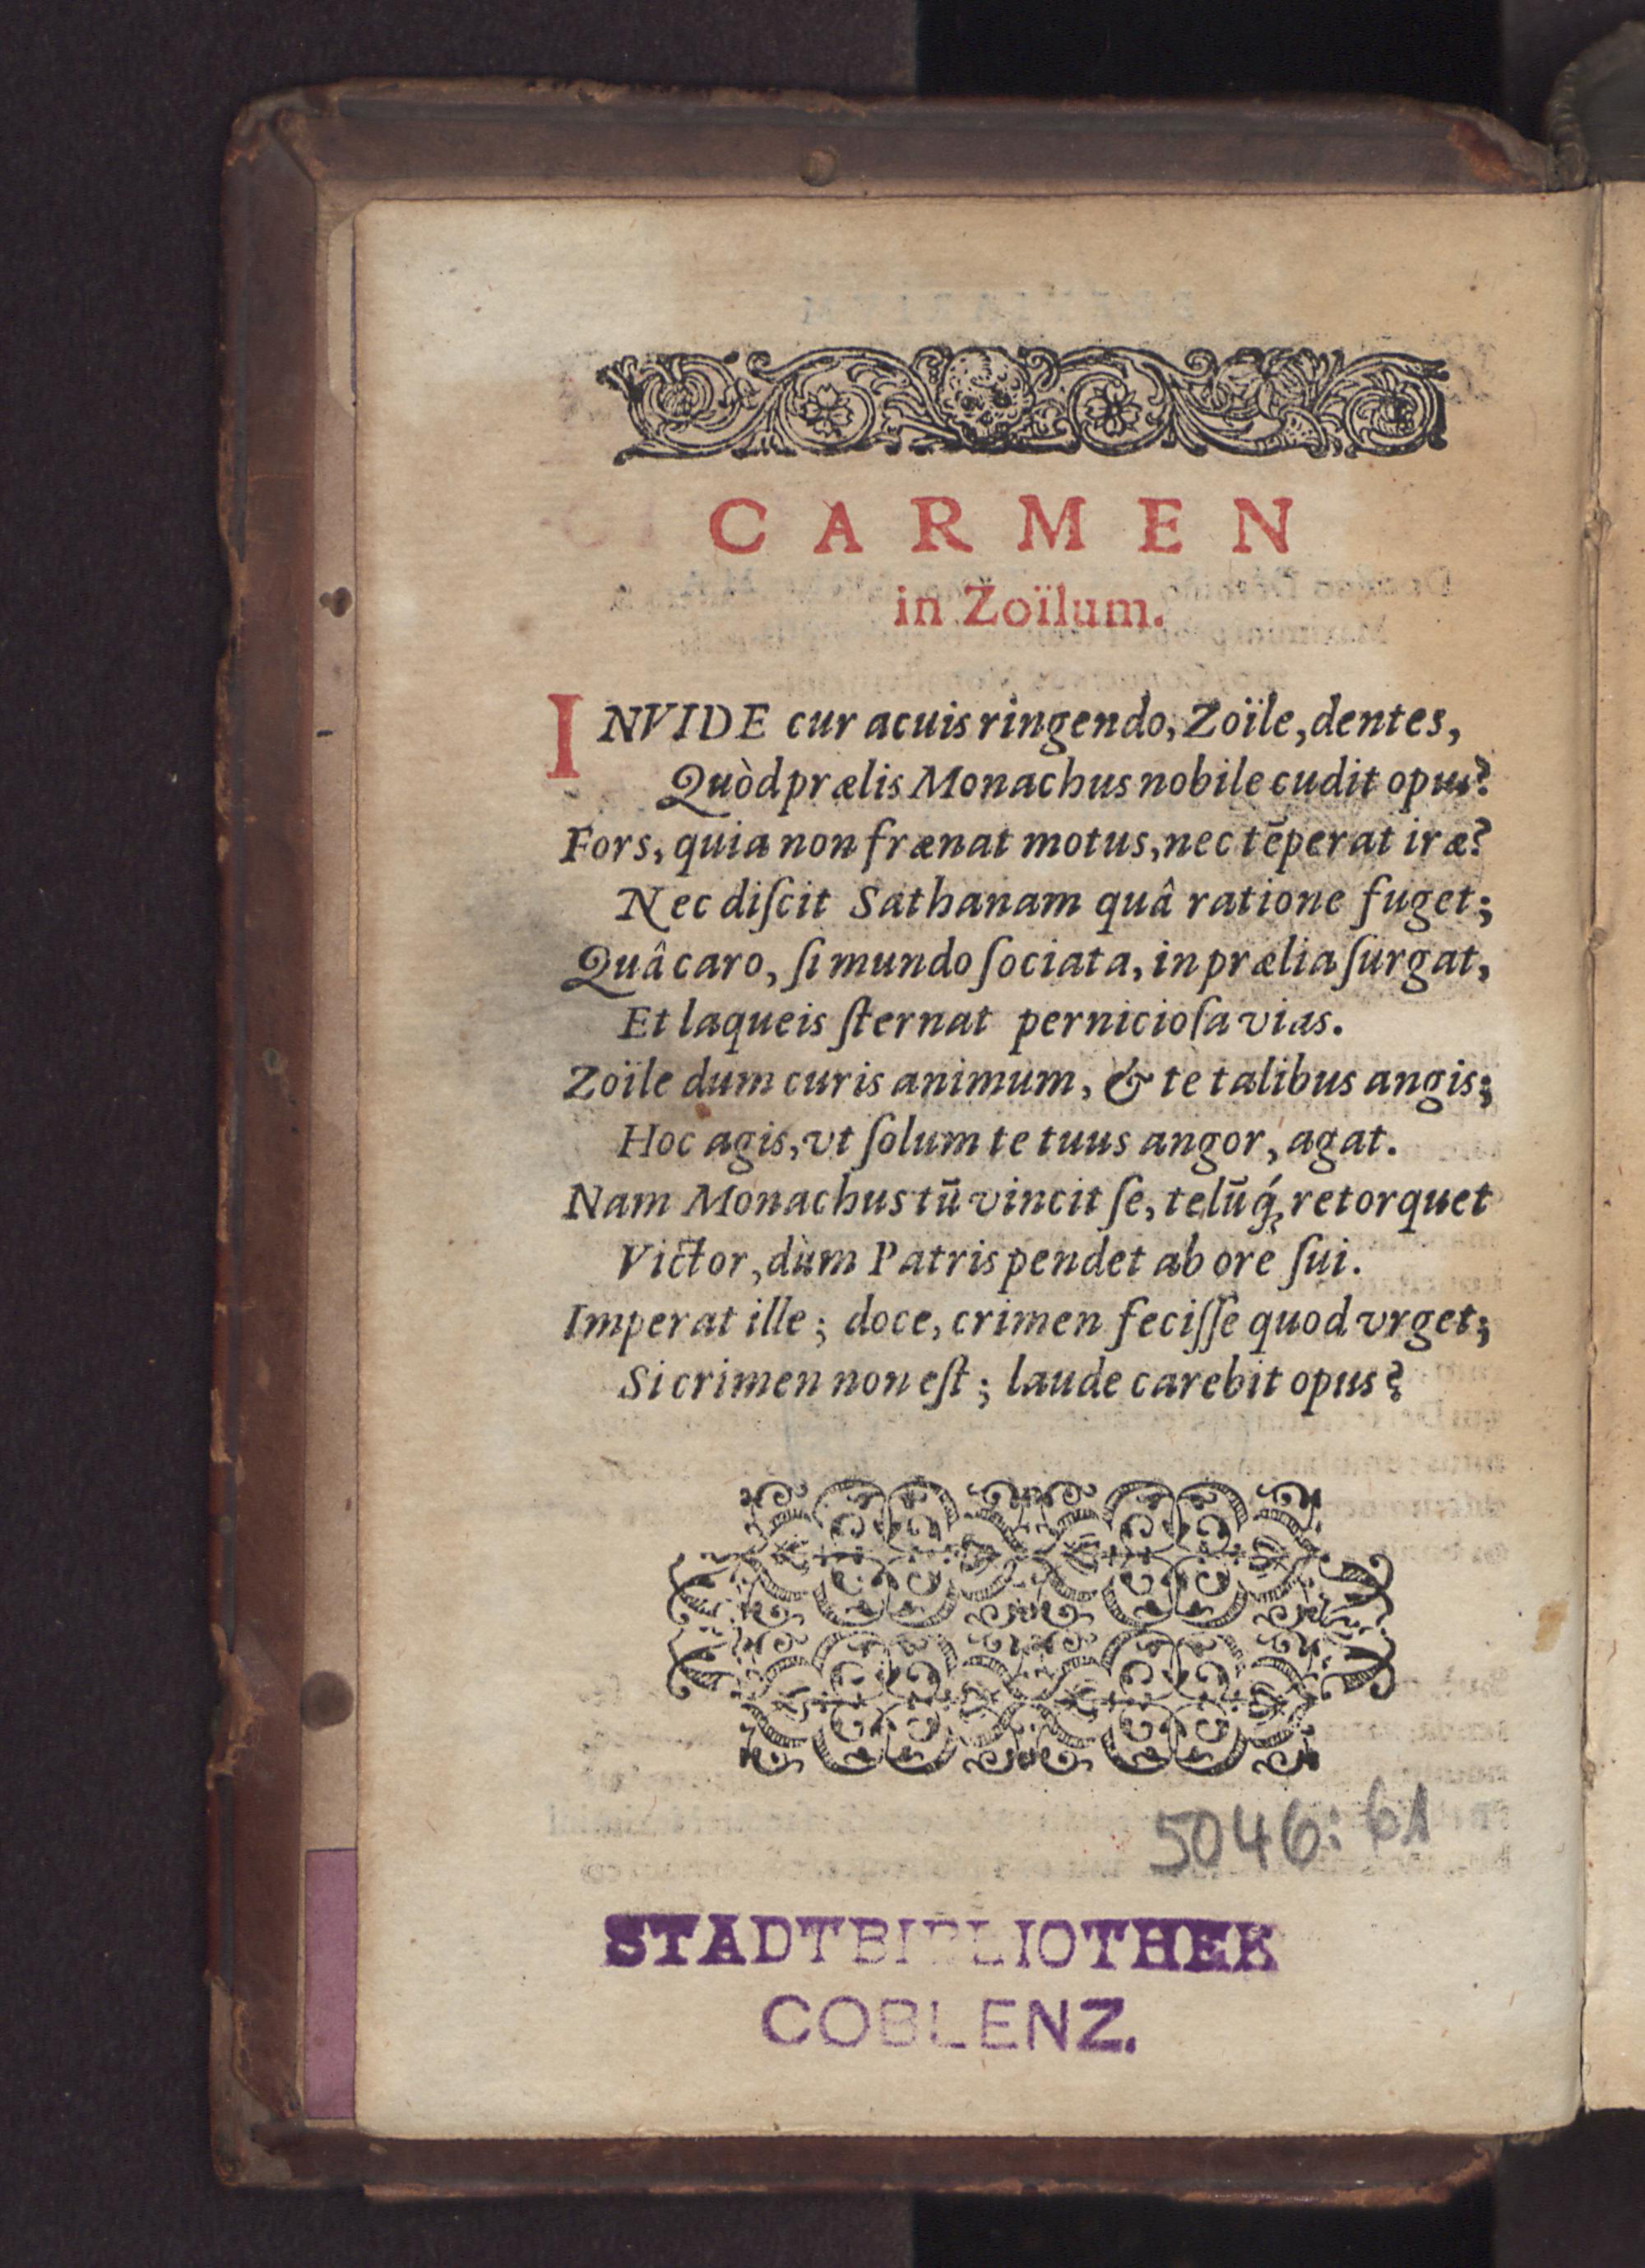 CARMEN
in Zoïlum.
INVIDE cur acuis ringendo, Zoïle, dentes,
Quòd prælis Monachus nobile cudit opus?
Fors, quia non frænat motus, nec tēperat iræ?
Nec diſcit Sathanam quâ ratione fuget;
Quâ caro, ſi mundo ſociata, in prælia ſurgat,
Et laqueis ſternat pernicioſa vias.
Zoïle dum curis animum, & te talibus angis;
Hoc agis, vt ſolum te tuus angor, agat.
Nam Monachus tū vincit ſe, telūq́; retorquet
Victor, dùm Patris pendet ab ore ſui.
Imperat ille; doce, crimen feciſſe quod vrget;
Si crimen non eſt; laude carebit opus?
5046: 61
STADTBIBLIOTHEK
COBLENZ.